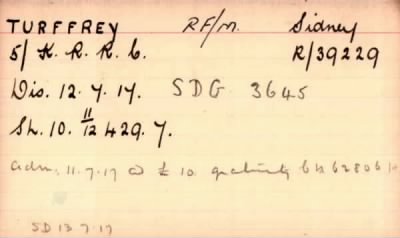 TURFFREY RF/M. Sidney
5/ K. R. R. C. R/39229
Dis. 12. 7. 17. SDG 3645
Sh. 10. 11/12 429. 7.
adm. 11.7.17 @ £ 10. gratuity
SD 13 7.17